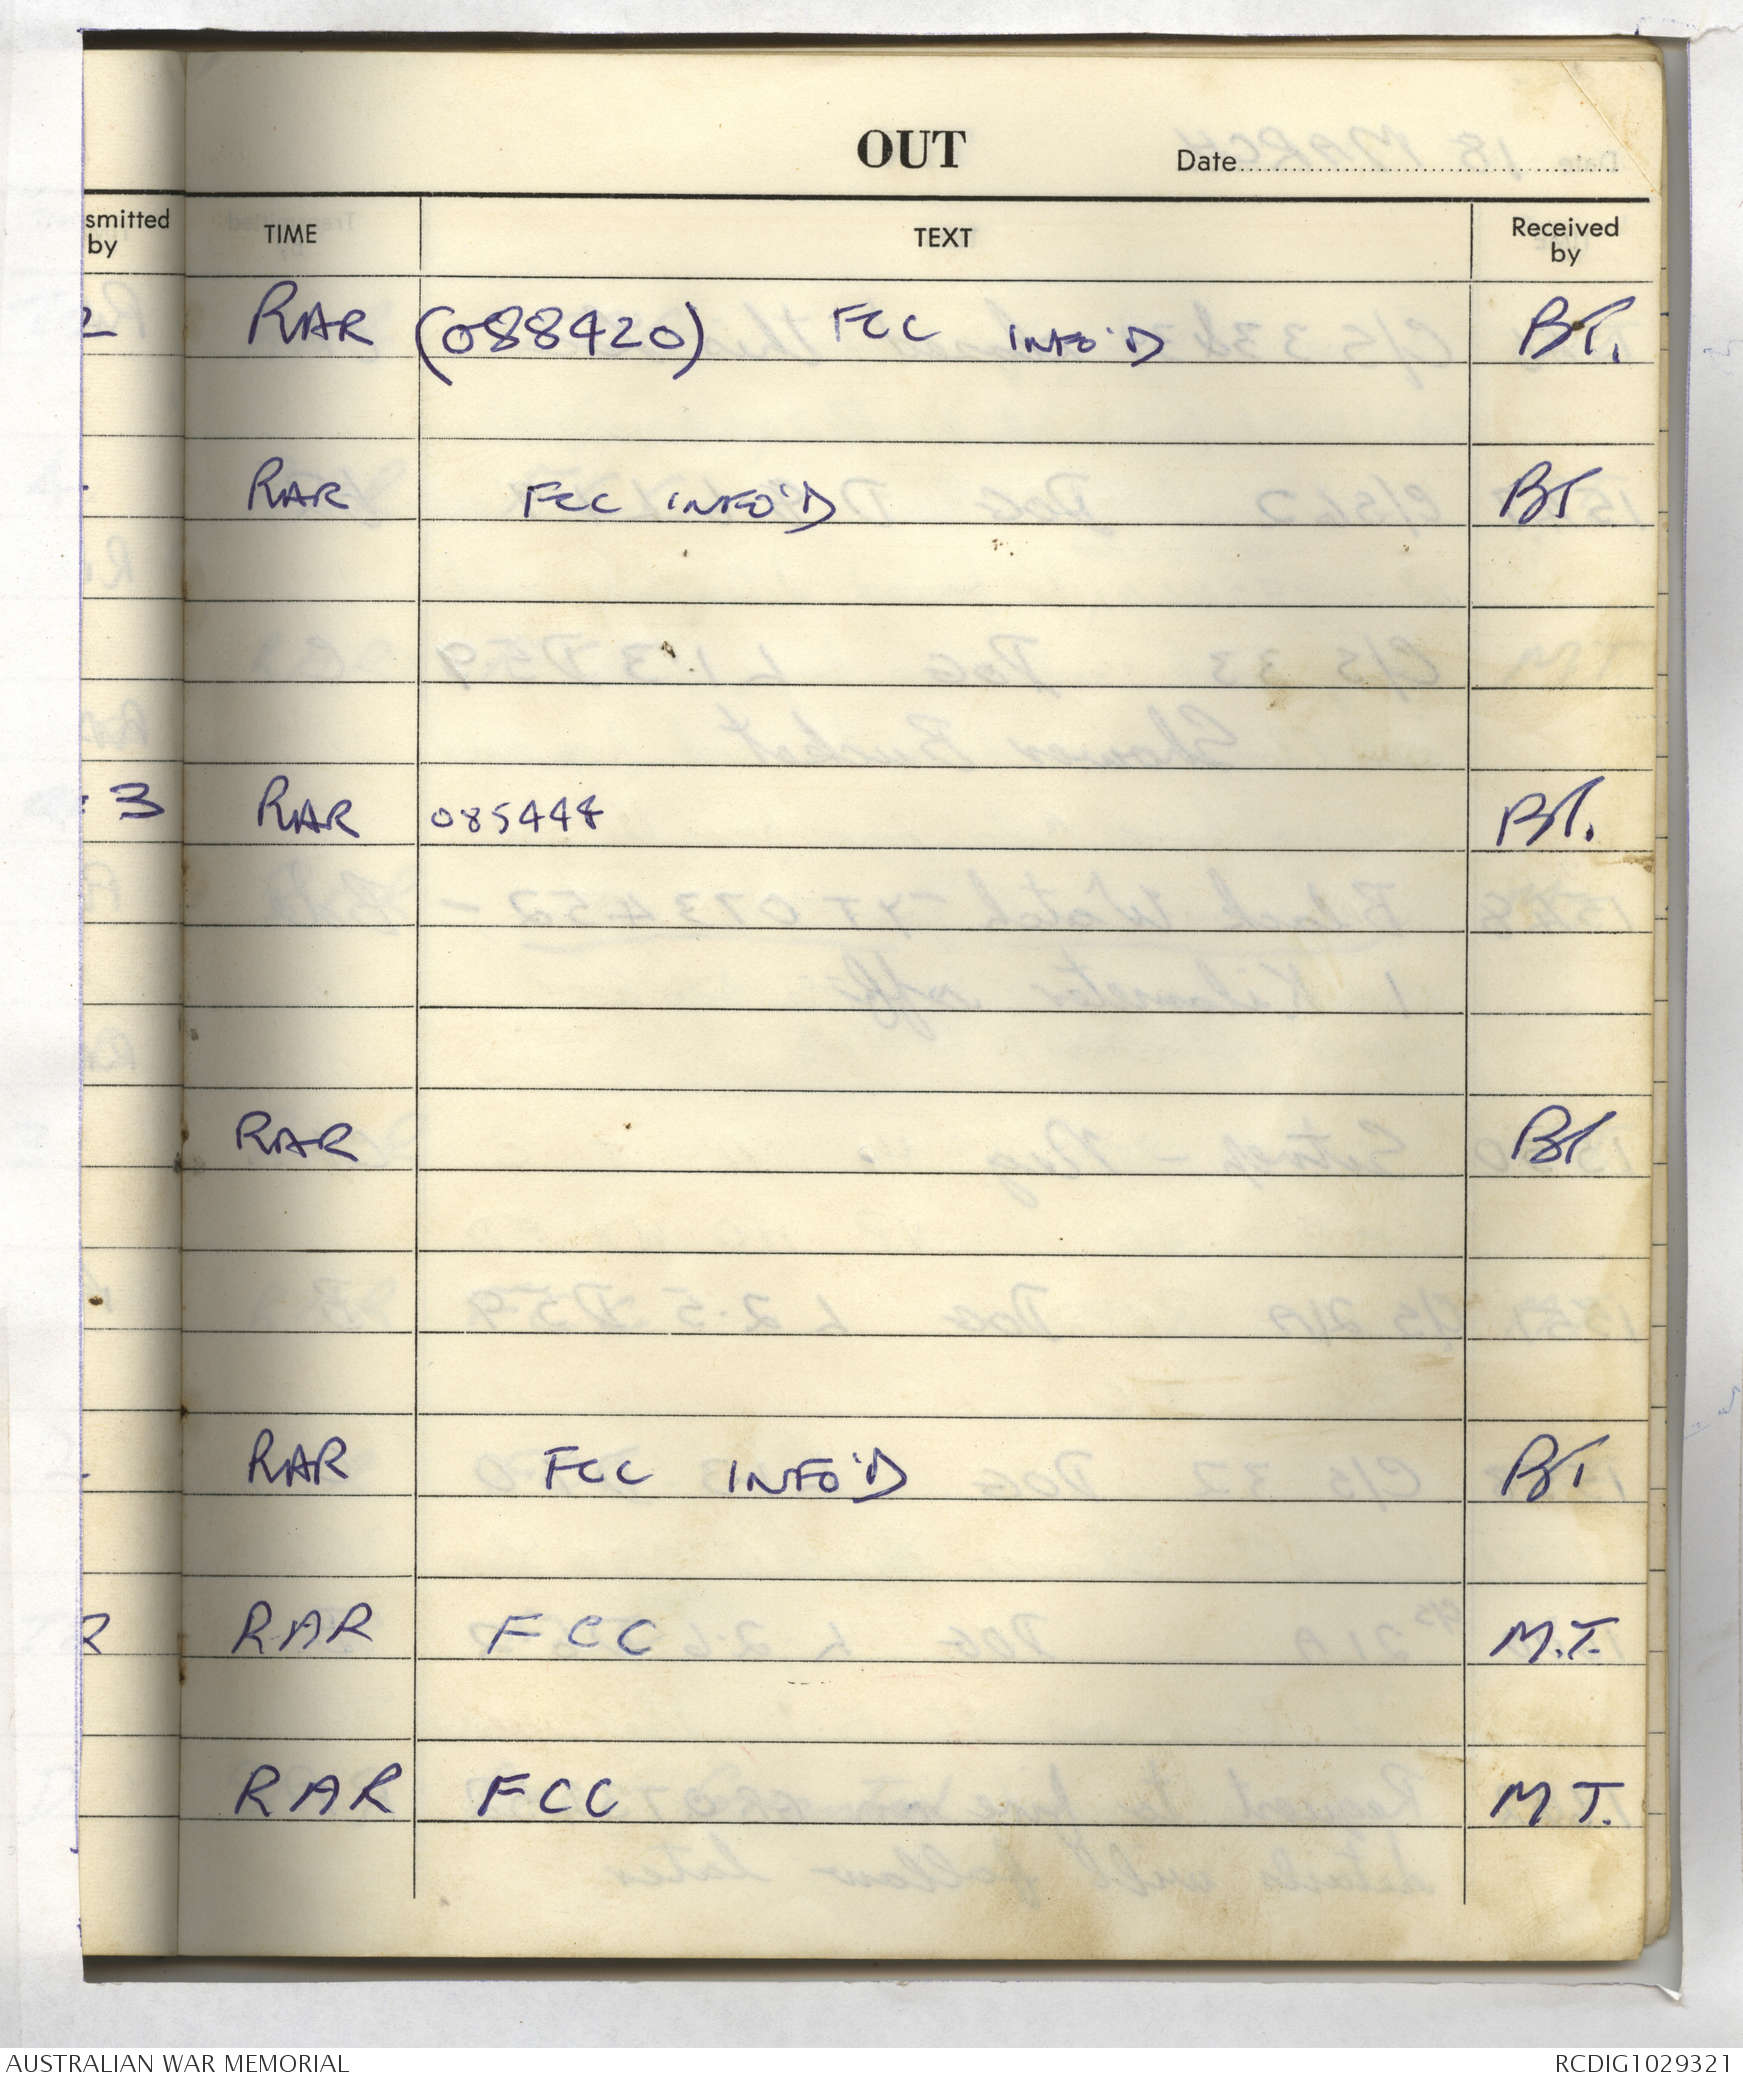 OUT
Date
smitted by
TIME
TEXT
Received by
RAR (088420) FCC INFO'D BT.
RAR FCC INFO'D BT
3 RAR 085448 BT.
RAR BT
RAR FCC INFO'D BT
RAR FCC M.T.
RAR FCC M T.
AUSTRALIAN WAR MEMORIAL
RCDIG1029321